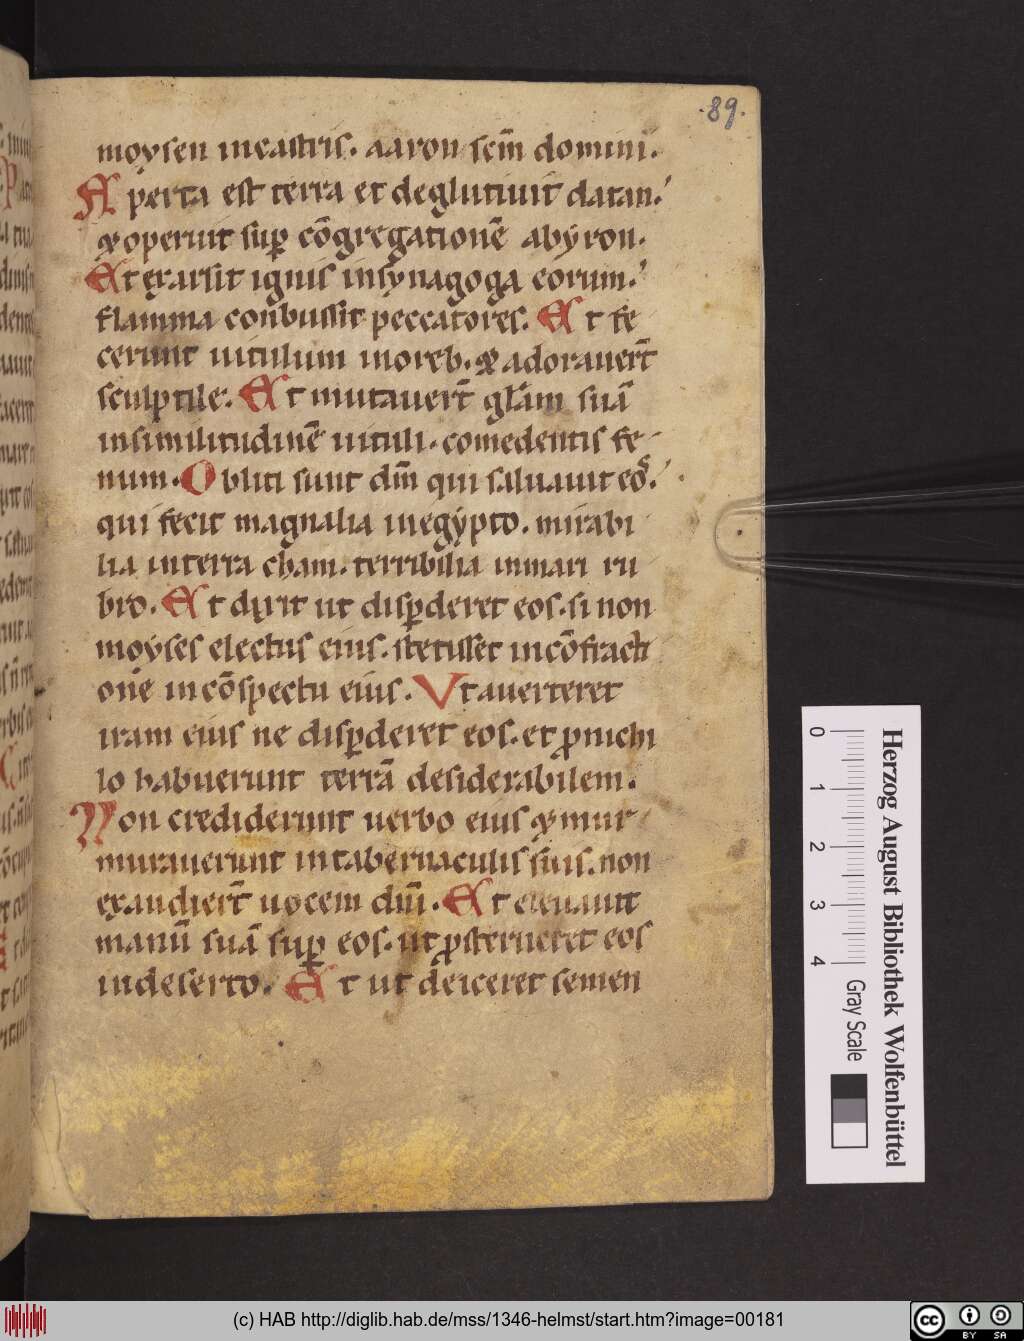 .89.
moysen incastris. aaron scm̄ domini.
Aperta est terra et deglutiuit datan.
& operuit sup cōgregationē abyron.
Et exarsit ignis insynagoga eorum.
flamma conbussit peccatores. Et fe
cerunt uitulum inoreb. & adorauert̄
sculptile. Et mutauert̄ glam̄ suā
insimilitudinē uituli. comedentis fe-
num. Obliti sunt dm̄ qui saluauit eos.
qui fecit magnalia inegypto. mirabi
lia interra cham. terribilia inmari ru
bro. Et dixit ut disp̱deret eos. si non
moyses electus eius. stetisset incōfracti
one incōspectu eius. Vt auerteret
iram eius ne disp̱deret eos. et p̱nichi
lo habuerunt terrā desiderabilem.
Non crediderunt uerbo eius & mur
murauerunt intabernaculis suis. non
exaudiert̄ uocem dni̅. Et eleuauit
manū suā sup̱ eos. ut p̱sterneret eos
indeserto. Et ut deiceret semen
Herzog August Bibliothek Wolfenbüttel
0 1 2 3 4 Gray Scale
(c) HAB http://diglib.hab.de/mss/1346-helmst/start.htm?image=00181
cc BY SA